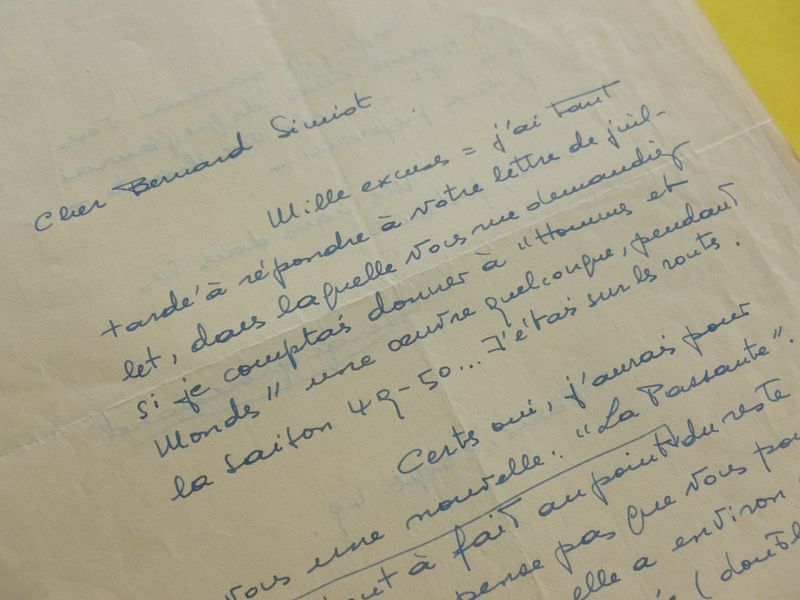 Cher Bernard Simiot
Mille excuses = j'ai tant
tardé à répondre à votre lettre de juil-
let, dans laquelle vous me demandiez
si je comptais donner à "Hommes et
Mondes" une œuvre quelconque, pendant
la saison 49-50... J'étais sur les routes.
Certes oui, j'aurais pour
vous une nouvelle: "La Passante".
à fait au point, du reste
pense pas que vous
elle a environ
(double